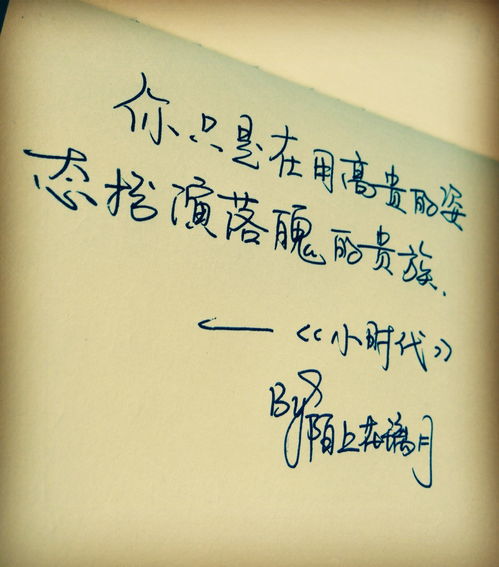 你只是在用高贵的姿
态扮演落魄的贵族.
——《小时代》
By 陌上在璃月